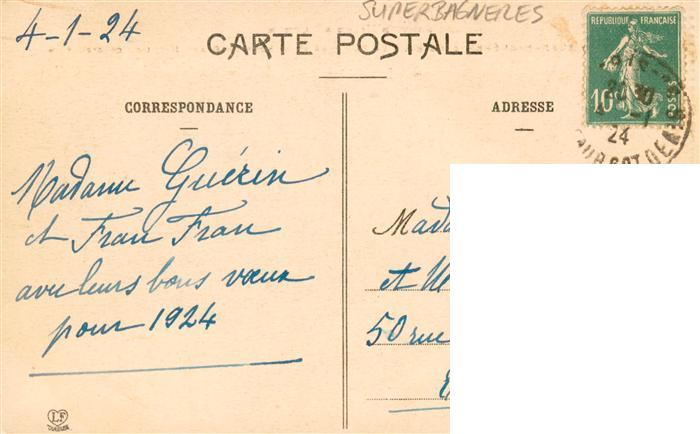 SUPERBAGNERES
4-1-24
CARTE POSTALE
RÉPUBLIQUE FRANÇAISE
10
POSTES
24
CORRESPONDANCE
ADRESSE
Madame Guérin
et Frau Frau
avec leurs bons vœux
pour 1924
et
50 rue
LF